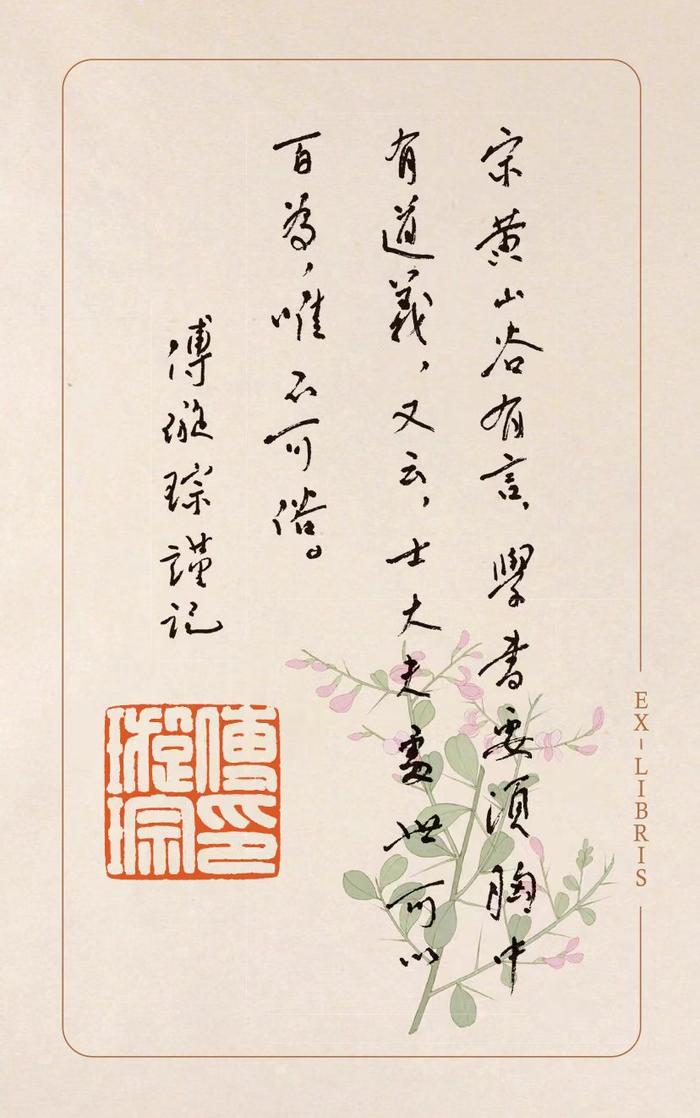 宋黄山谷有言，學書要須胸中
有道義，又云，士大夫處世可以
百為，唯不可俗。
傅璇琮謹記
傅印
璇琮
EX-LIBRIS